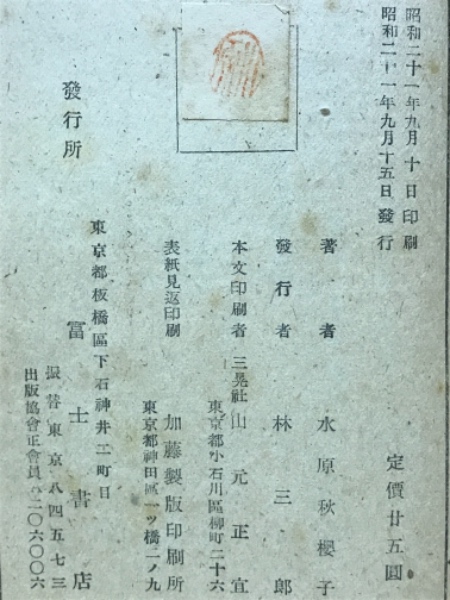 昭和二十一年九月十日印刷
昭和二十一年九月十五日發行
定價廿五圓
著者 水原秋櫻子
發行者 林三郎
本文印刷者 三晃社山元正宜
東京都小石川區柳町二十六
表紙見返印刷 加藤製版印刷所
東京都神田區一ツ橋二ノ九
發行所
東京都板橋區下石神井二町目
富士書店
振替東京八四五七三
出版協會正會員 二〇六〇〇六